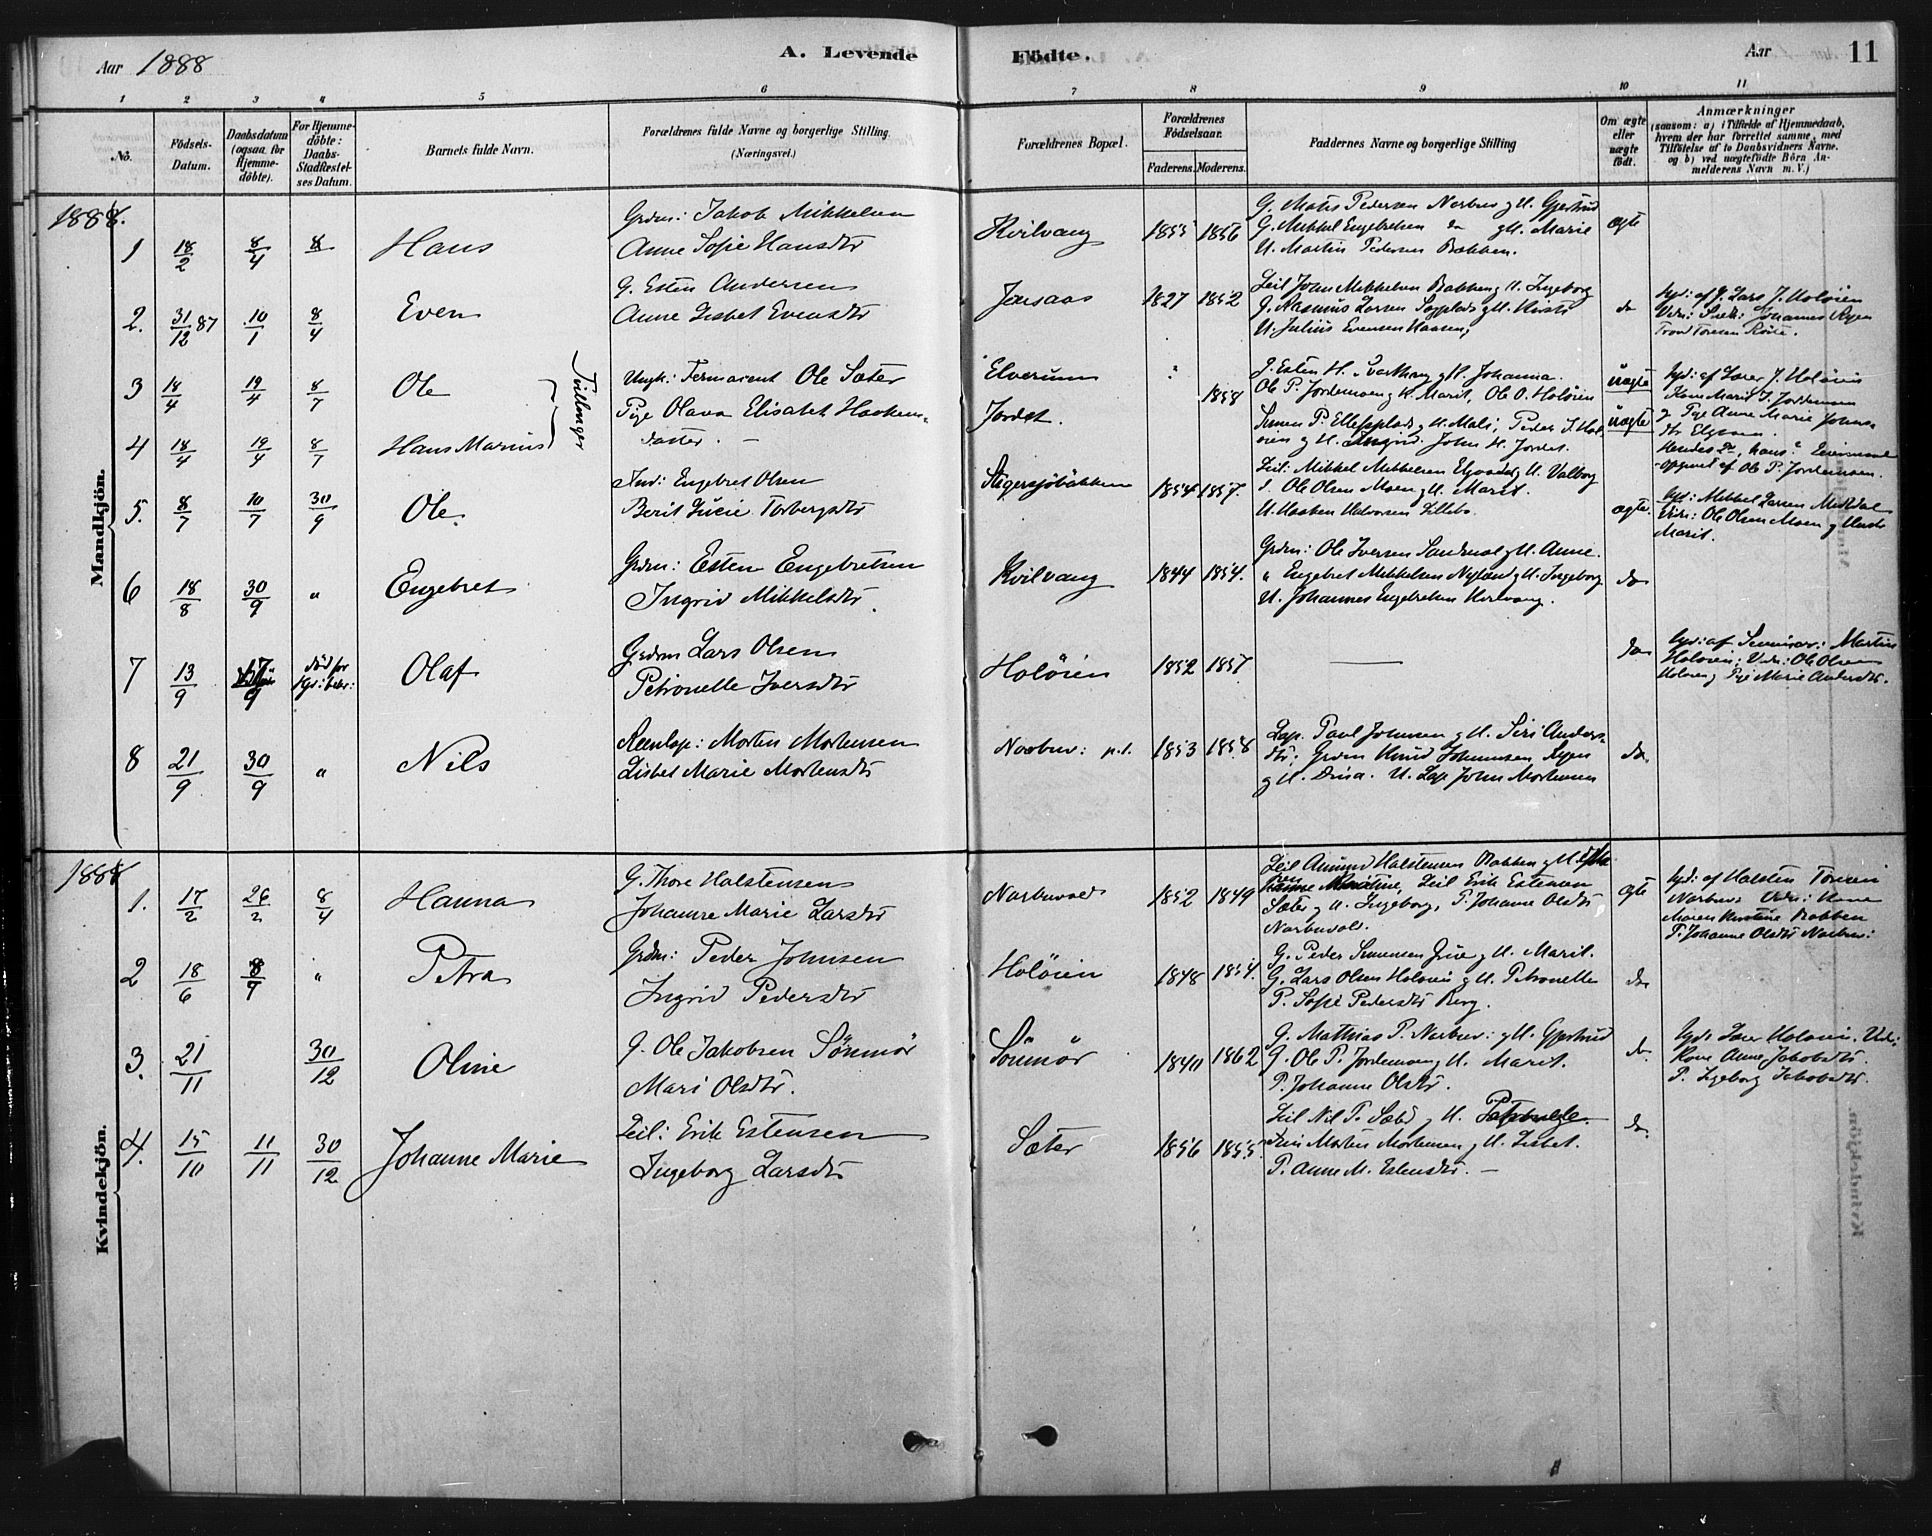 Aar 1888
A. Levende
Födte.
Aar
11
1 2 3 4 5 6 7 8 9 10 11
No.
Födsels-
Datum.
Daabsdatum
(ogsaa for
Hjemme-
döbte).
For Hjemme-
döbte:
Daabs-
Stadfæstel-
ses Datum.
Barnets fulde Navn.
Forældrenes fulde Navne og borgerlige Stilling.
(Næringsvei.)
Forældrenes Bopæl.
Forældrenes
Födselsaar.
Faderens. Moderens.
Faddernes Navne og borgerlige Stilling
Om ægte
eller
uægte
födt.
Anmærkninger
(saasom: a) i Tilfælde af Hjemmedaab,
hvem der har forrettet samme, med
Tilföielse af to Daabsvidners Navne.
og b) ved uægtefödte Börn An-
melderens Navn m. V.)
Mandkjön.
1888.
1 18/2 8/4 Hans
Grdm: Jakob Mikkelsen
Anne Sofie Hansdtr
Kvilvang 1855 1856
G. Mats Pedersen Narbuv g H. Gjertrud
G. Mikkel Engebretsen do g H. Marie
U. Martin Pedersen Bakken.
ægte
2. 31/12 87 10/1 8/4 Even
G. Esten Andersen
Anne Lisbet Evensdtr
Jonsaas 1827 1852
Leil John Mikkelsen Bakken g H. Ingeborg
G. Rasmus Larsen g H. Kirsti
U. Julius Evensen
do
hjd: af J. Lars J. Holöien
Vidn: Johannes Rygen
Trond Toresen
3 18/4 19/4 8/7 Ole
Tvillinger
Ungk: Fermasent Ole Sæter
Pige Olava Elisabet Haaken-
datter. —
Elverum "
Jordet. 1858
J. Esten H. g H. Johanna.
Ole P. Jordemoen g H. Marit, Ole O. Holöien
uægte
hjd: af Lærer J. Holöien
Kone Marit J. Jordemoen
g Pige Anne Marie Johns-
dtr
4 18/4 19/4 8/7 Hans Marius
Simen P. g H. Mali; Peder J. Hol-
öien g H. Ingrid. John H. Jordet.
uægte
opgivet af Ole P. Jordemoen.
5. 8/7 10/7 30/9 Ole.
Ind: Engebret Olsen
Berit Lucie Torbergsdtr
Stigersjöbakken 1854 1857.
Leil: Mikkel Mikkelsen g H. Valborg
Ole Olsen Moen g H. Marit.
U. Haaken Halvorsen Lillebo.
ægte.
hjd: Mikkel Larsen
Vidn: Ole Olsen Moen g Hustr
Marit.
6 18/8 30/9 " Engebret
Grdm: Esten Engebretsen
Ingrid Mikkelsdtr.
Kvilvang 1844 1854.
Grdm: Ole Iversen g H. Anne.
" Engebret Mikkelsen Nyland g H. Ingeborg
U. Johannes Engebretsen Kvilvang.
do
7 13/9 17/9 död för Olaf
Grdm Lars Olsen
Petronelle Iversdtr
Holöien 1852 1857
—
do
hjd: af Seminar: Martin
Holöien; Vidn: Ole Olsen
Holöien g Pige Marie Andersdtr.
8 21/9 30/9 " Nils
Reenlap: Morten Mortensen
Lisbet Marie Mortensdtr
Narbuv: p.t. 1853 1858
Lap. Paul Johnsen g H. Siri Anders-
dtr; Grdm Knud Johannesen Rygen
g H. Drina. U. Lap John Mortensen
do
Kvindekjön.
1888
1. 17/2 26/2 8/4 Hanna
G. Thore Halstensen
Johanne Marie Larsdtr
Narbuvold 1852 1849
Leil Amund Halstensen Bakken g H.
Leil Erik Estensen
Sæter g H. Ingeborg, P. Johanne Olsdtr
Narbuvold.
ægte
hjd: af Halsten Toresen
Narbuv: Vidn: Kone
Maren Kirstine Bakken
P. Johanne Olsdtr Narbuv:
2 18/6 8/7 " Petra
Grdm: Peder Johnsen
Ingrid Pedersdtr
Holöien 1848 1854.
G. Peder Simensen g H. Marit.
G. Lars Olsen Holöien g H. Petronelle
P. Sofie Pedersdtr Berg.
do
3. 21/11 30/12 Oline
G. Ole Jakobsen Sönmör
Mari Olsdtr.
Sönmör 1840 1862
G. Mathias P. Narbuv: g H. Gjertrud
G. Ole P. Jordemoen g H. Marit.
P. Johanne Olsdtr.
do.
hjd: Lærer Holöien. Vid:
Kone Anne Jakobsdtr.
P. Ingeborg Jakobsdtr.
4. 15/10 11/11 30/12 Johanne Marie
Leil: Erik Estensen
Ingeborg Larsdtr
Sæter 1856 1855
Leil Nil P. Sæter g H. Petronelle.
Morten Mortensen g H. Lisbet.
P. Anne M. Estensdtr. —
do.